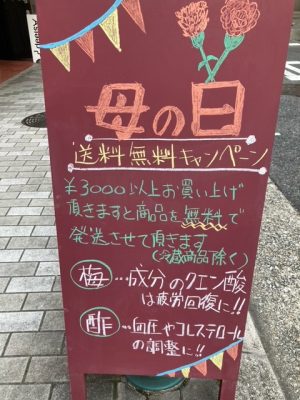 母の日
送料無料キャンペーン
¥3000以上お買い上げ
頂きますと商品を無料で
発送させて頂きます
(冷蔵商品除く)
梅…成分のクエン酸
は疲労回復に!!
酢…血圧やコレステロール
の調整に!!